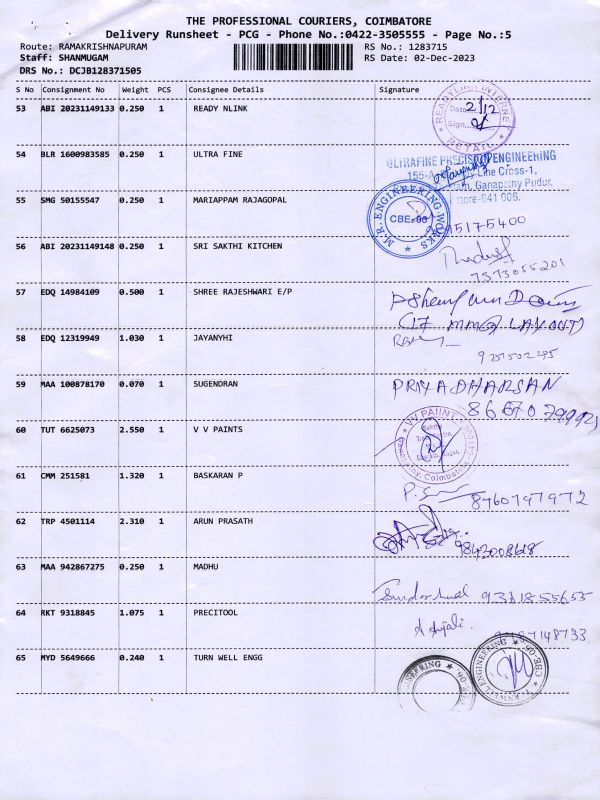 THE PROFESSIONAL COURIERS, COIMBATORE
Delivery Runsheet - PCG - Phone No.:0422-3505555 - Page No.:5
Route: RAMAKRISHNAPURAM
Staff: SHANMUGAM
DRS No.: DCJB128371505
RS No.: 1283715
RS Date: 02-Dec-2023
S No Consignment No Weight PCS Consignee Details Signature
53 ABI 20231149133 0.250 1 READY NLINK
Date 2/12
Sign
RETAIL
54 BLR 1600983585 0.250 1 ULTRA FINE
ULTRAFINE PRECISION ENGINEERING
Line Cross-1,
Ganapathy Pudur,
641 006.
55 SMG 50155547 0.250 1 MARIAPPAM RAJAGOPAL
M.R. ENGINEERING WORKS
CBE-06
56 ABI 20231149148 0.250 1 SRI SAKTHI KITCHEN
7373055201
57 EDQ 14984109 0.500 1 SHREE RAJESHWARI E/P
58 EDQ 12319949 1.030 1 JAYANYHI
59 MAA 100878170 0.070 1 SUGENDRAN
PRIYADHARSAN
60 TUT 6625073 2.550 1 V V PAINTS
VV PAINT
Coimbatore
61 CMM 251581 1.320 1 BASKARAN P
8760797972
62 TRP 4501114 2.310 1 ARUN PRASATH
63 MAA 942867275 0.250 1 MADHU
9361855655
64 RKT 9318845 1.075 1 PRECITOOL
65 MYD 5649666 0.240 1 TURN WELL ENGG
ENGINEERING
CBE-06